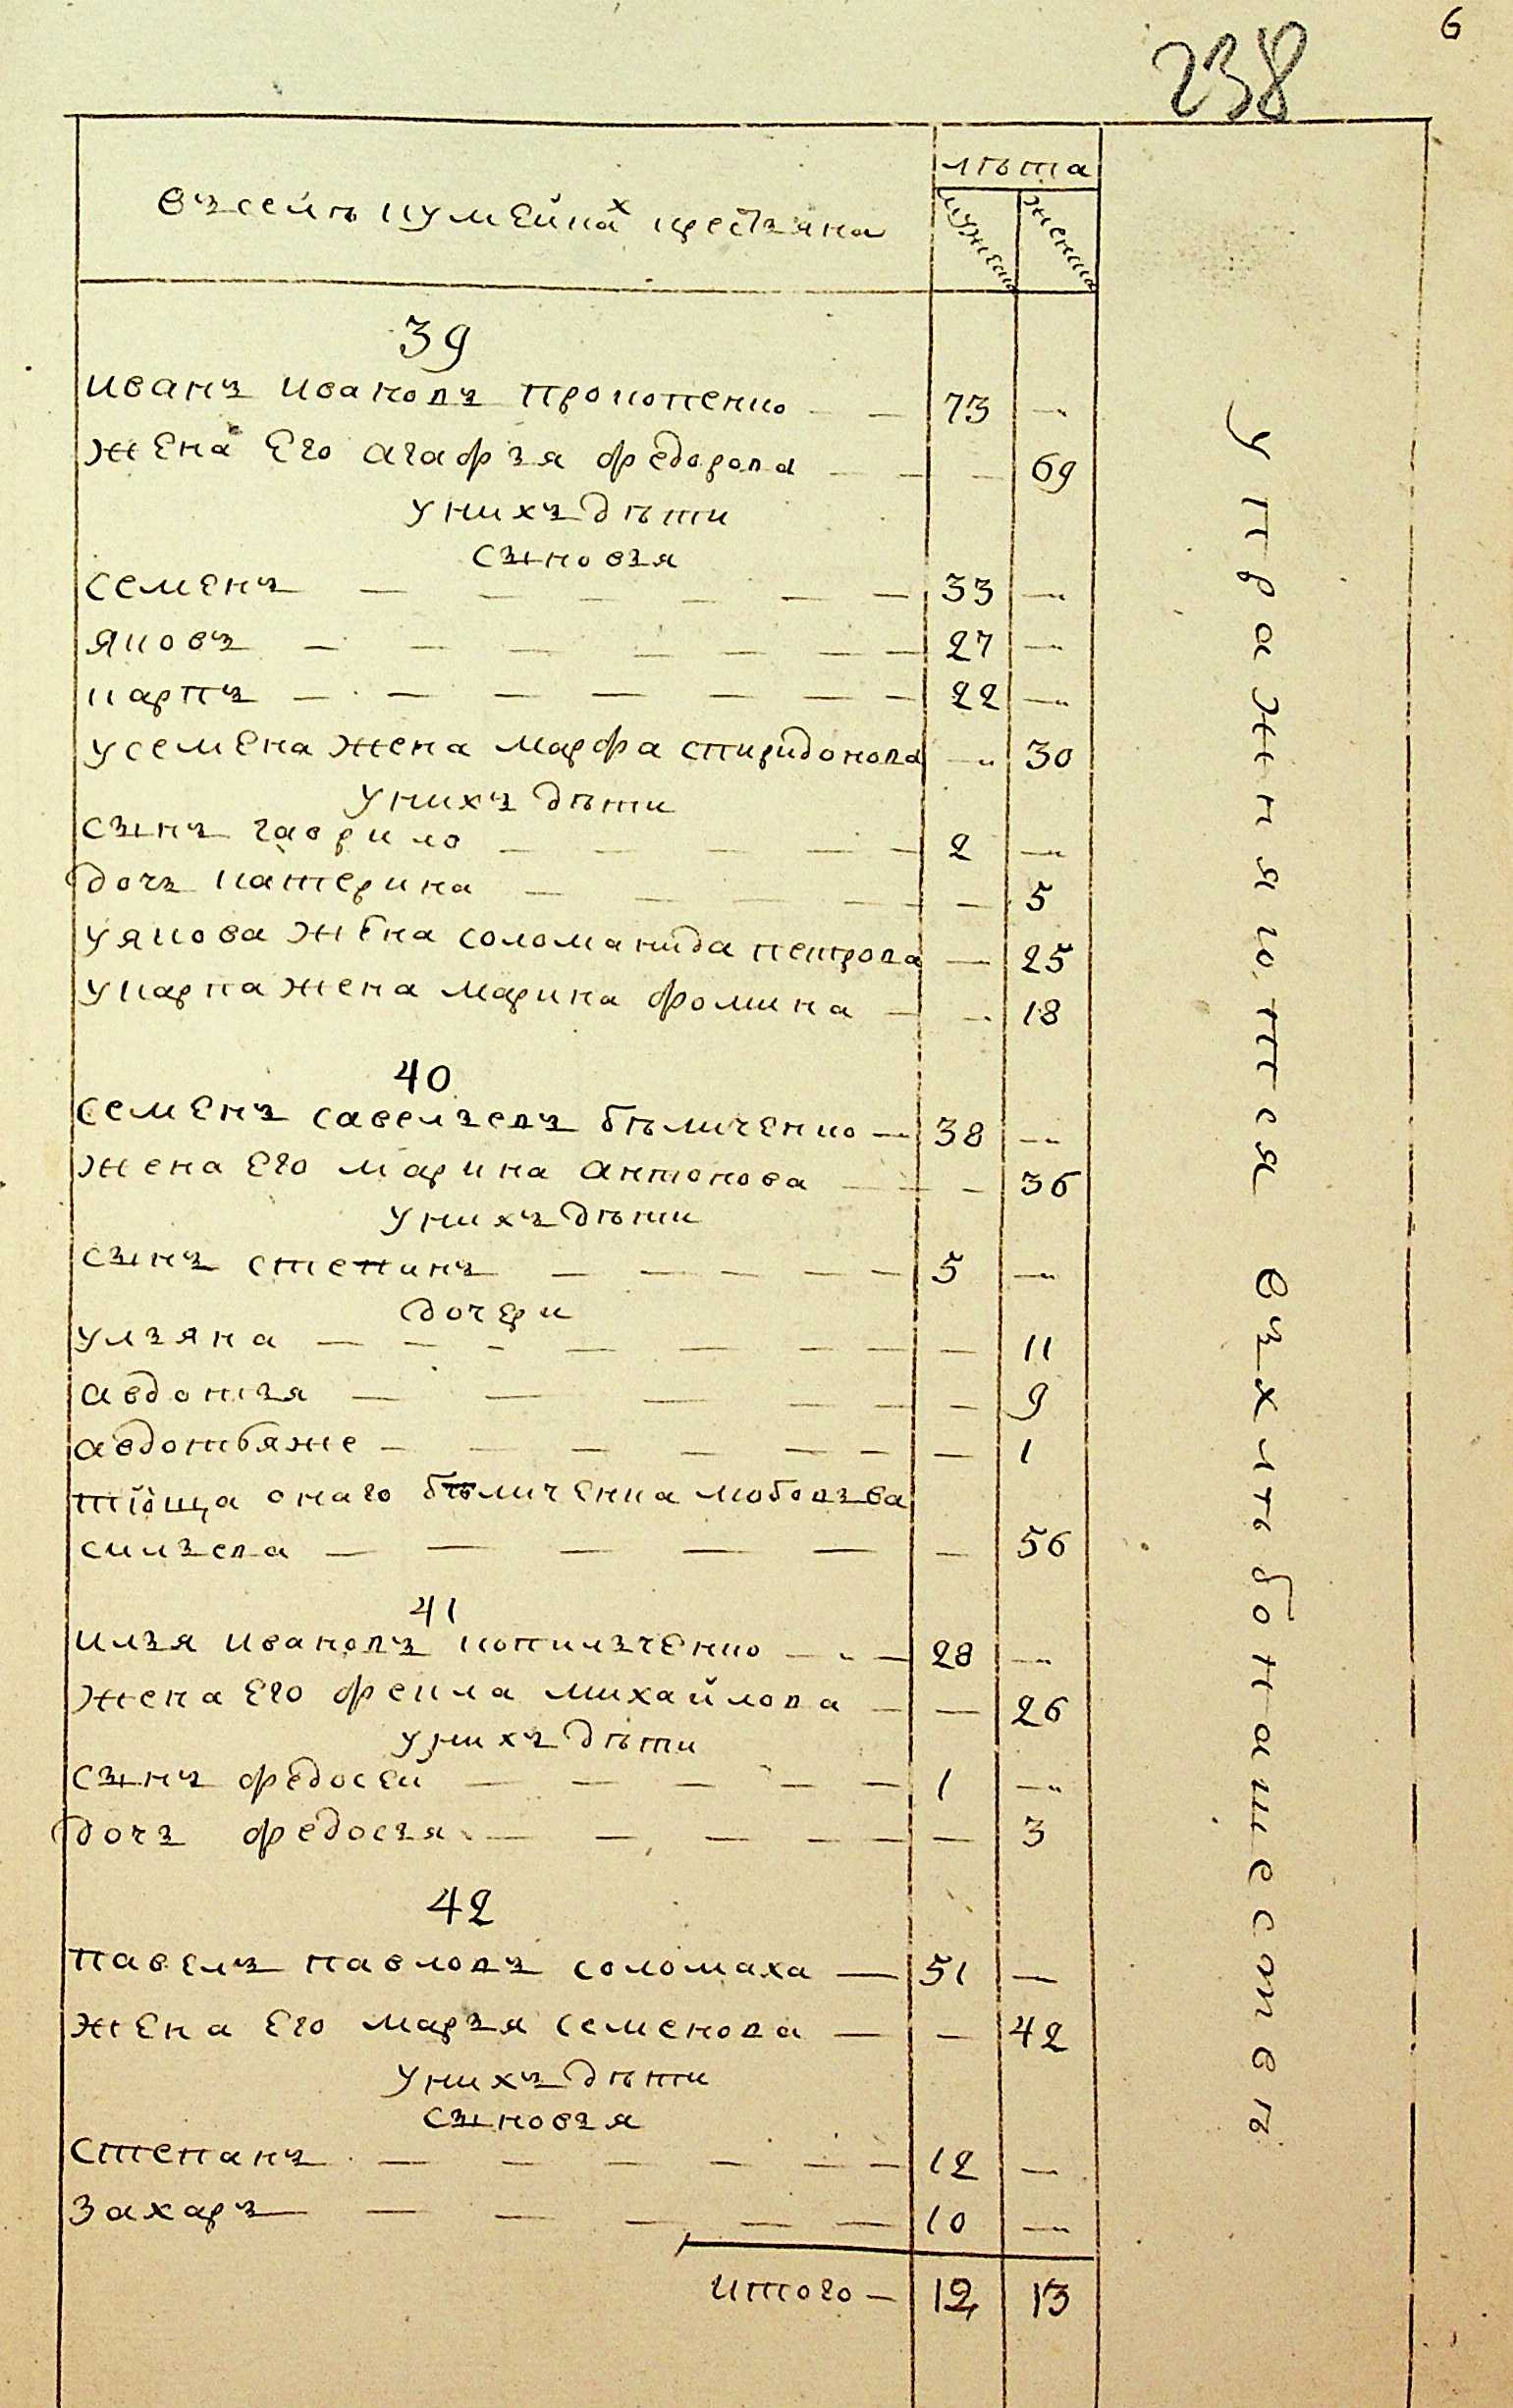 6
238
лѣта
въ селѣ кумейках крестьянъ
мужеска
женска
39
иванъ ивановъ прокопенко — 73 —
жена его агафья федорова — 69
у нихъ дѣти
сыновья
семенъ — 33 —
яковъ — 27 —
карпъ — 22 —
у семена жена марфа спиридонова — 30
у нихъ дѣти
сынъ гаврило — 2 —
дочь катерина — 5
у якова жена соломанида петрова — 25
у карпа жена марина фомина — 18
40
семенъ савельевъ бѣличенко — 38 —
жена его марина антонова — 36
у нихъ дѣти
сынъ степинъ — 5 —
дочери
ульяна — 11
авдотья — 9
авдотья же — 1
тіоща онаго бѣличенка любовьва
сильева — 56
41
илья ивановъ копильченко — 28 —
жена его фекла михайлова — 26
у нихъ дѣти
сынъ федосей — 1 —
дочь федосья — 3
42
павелъ павловъ соломаха — 51 —
жена его марья семенова — 42
у нихъ дѣти
сыновья
степанъ — 12 —
захаръ — 10 —
итого — 12 13
упражняются въ хлѣбопашествѣ